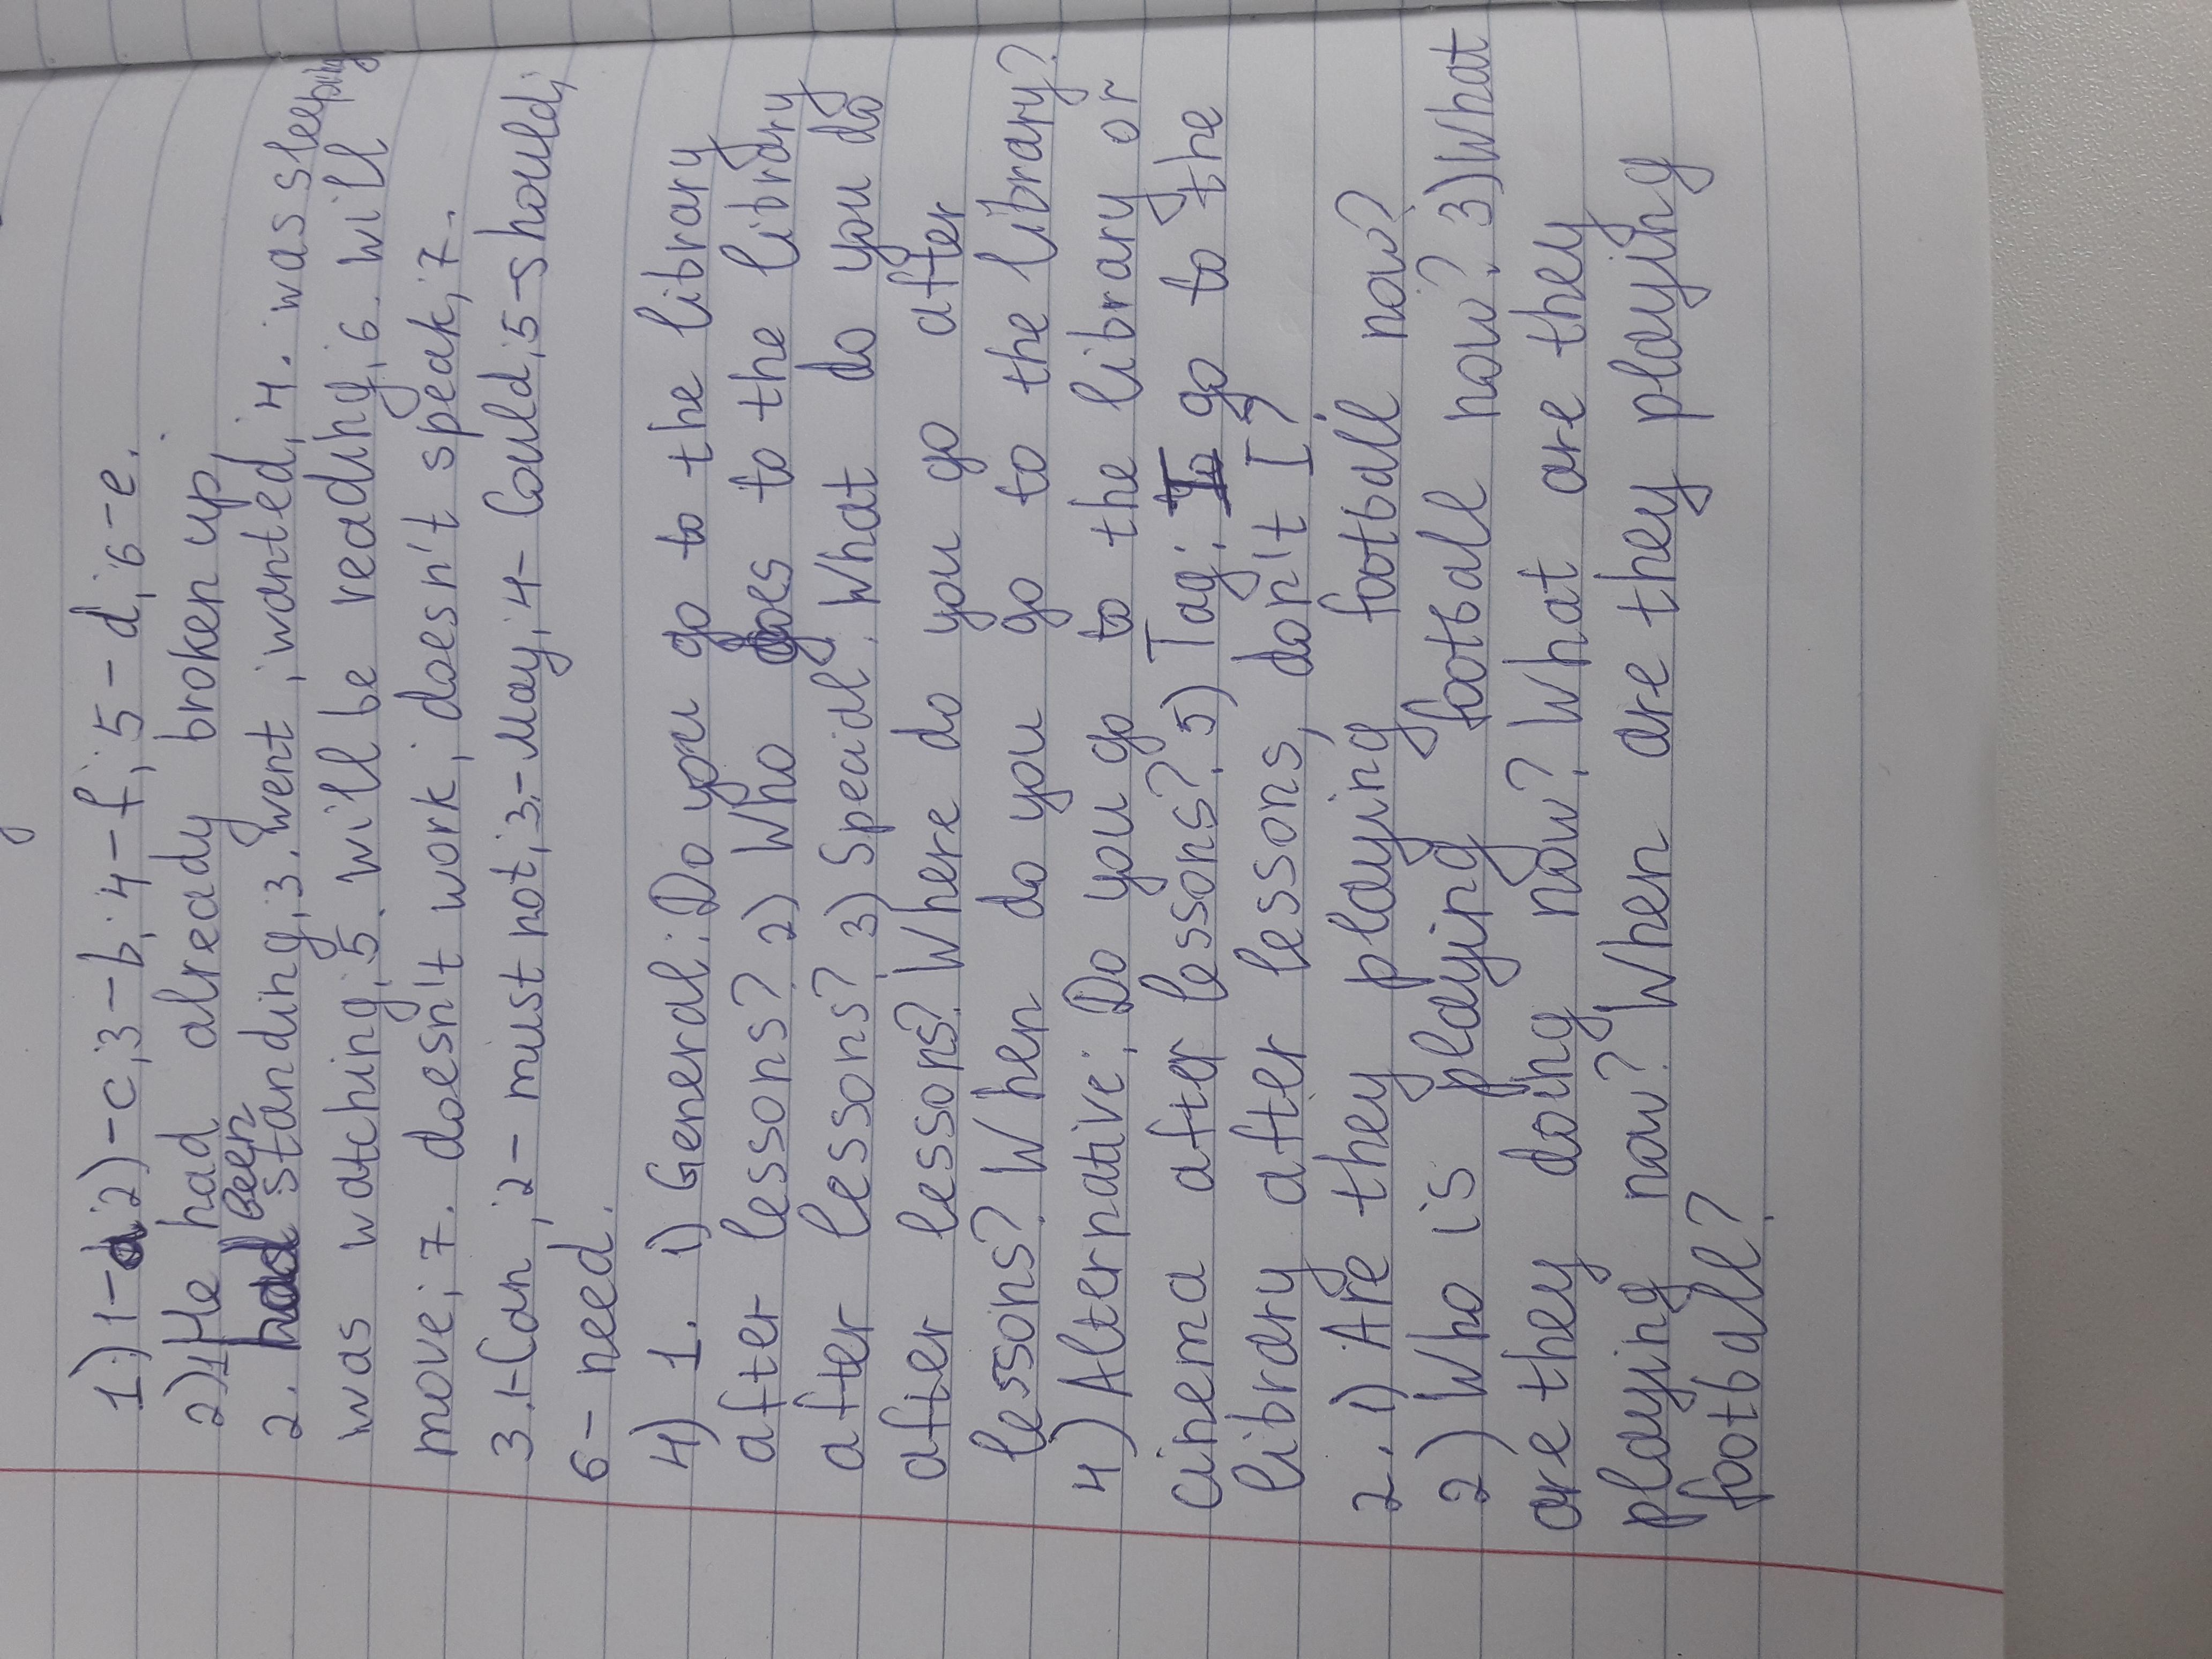 1) 1-a; 2)-c; 3-b; 4-f; 5-d; 6-e.
2) 1 He had already broken up
2. had been standing; 3. went, wanted; 4. was sleeping
was watching; 5. will be reading; 6. will
move; 7. doesn't work; doesn't speak; 7.
3. 1-Can; 2-must not; 3.-May; 4-Could; 5-should;
6-need.
4) 1. 1) General: Do you go to the library
after lessons? 2) Who goes to the library
after lessons? 3) Special: What do you do
after lessons? Where do you go after
lessons? When do you go to the library?
4) Alternative: Do you go to the library or
cinema after lessons? 5) Tag: I go to the
library after lessons, don't I?
2. 1) Are they playing football now?
2) Who is playing football now? 3) What
are they doing now? What are they
playing now? When are they playing
football?